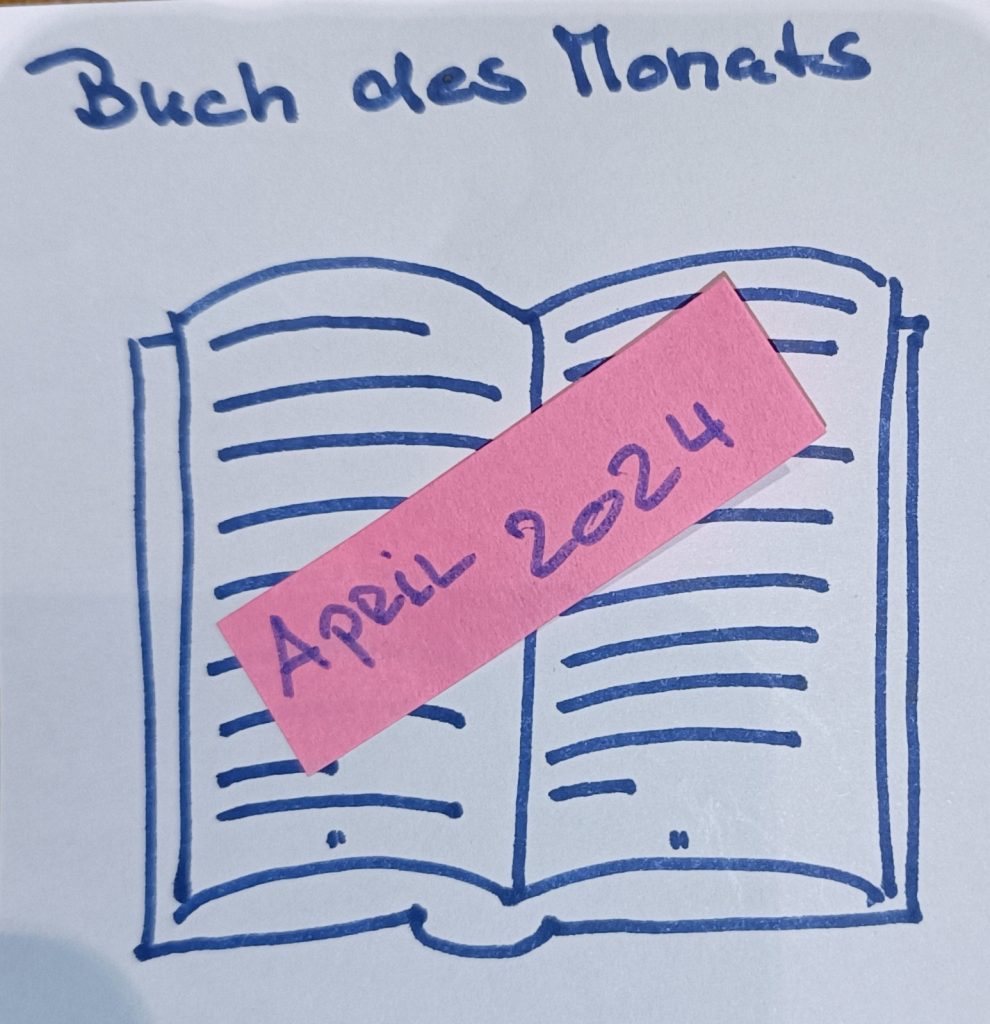 Buch des Monats
April 2024